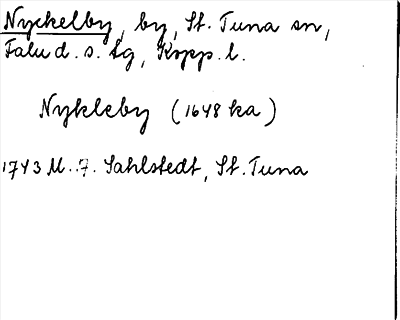 Nyckelby, by, St. Tuna sn,
Falu d. s. tg, Kopp. l.
Nykleby (1648 ka)
1743 M. 7. Sahlstedt, St. Tuna